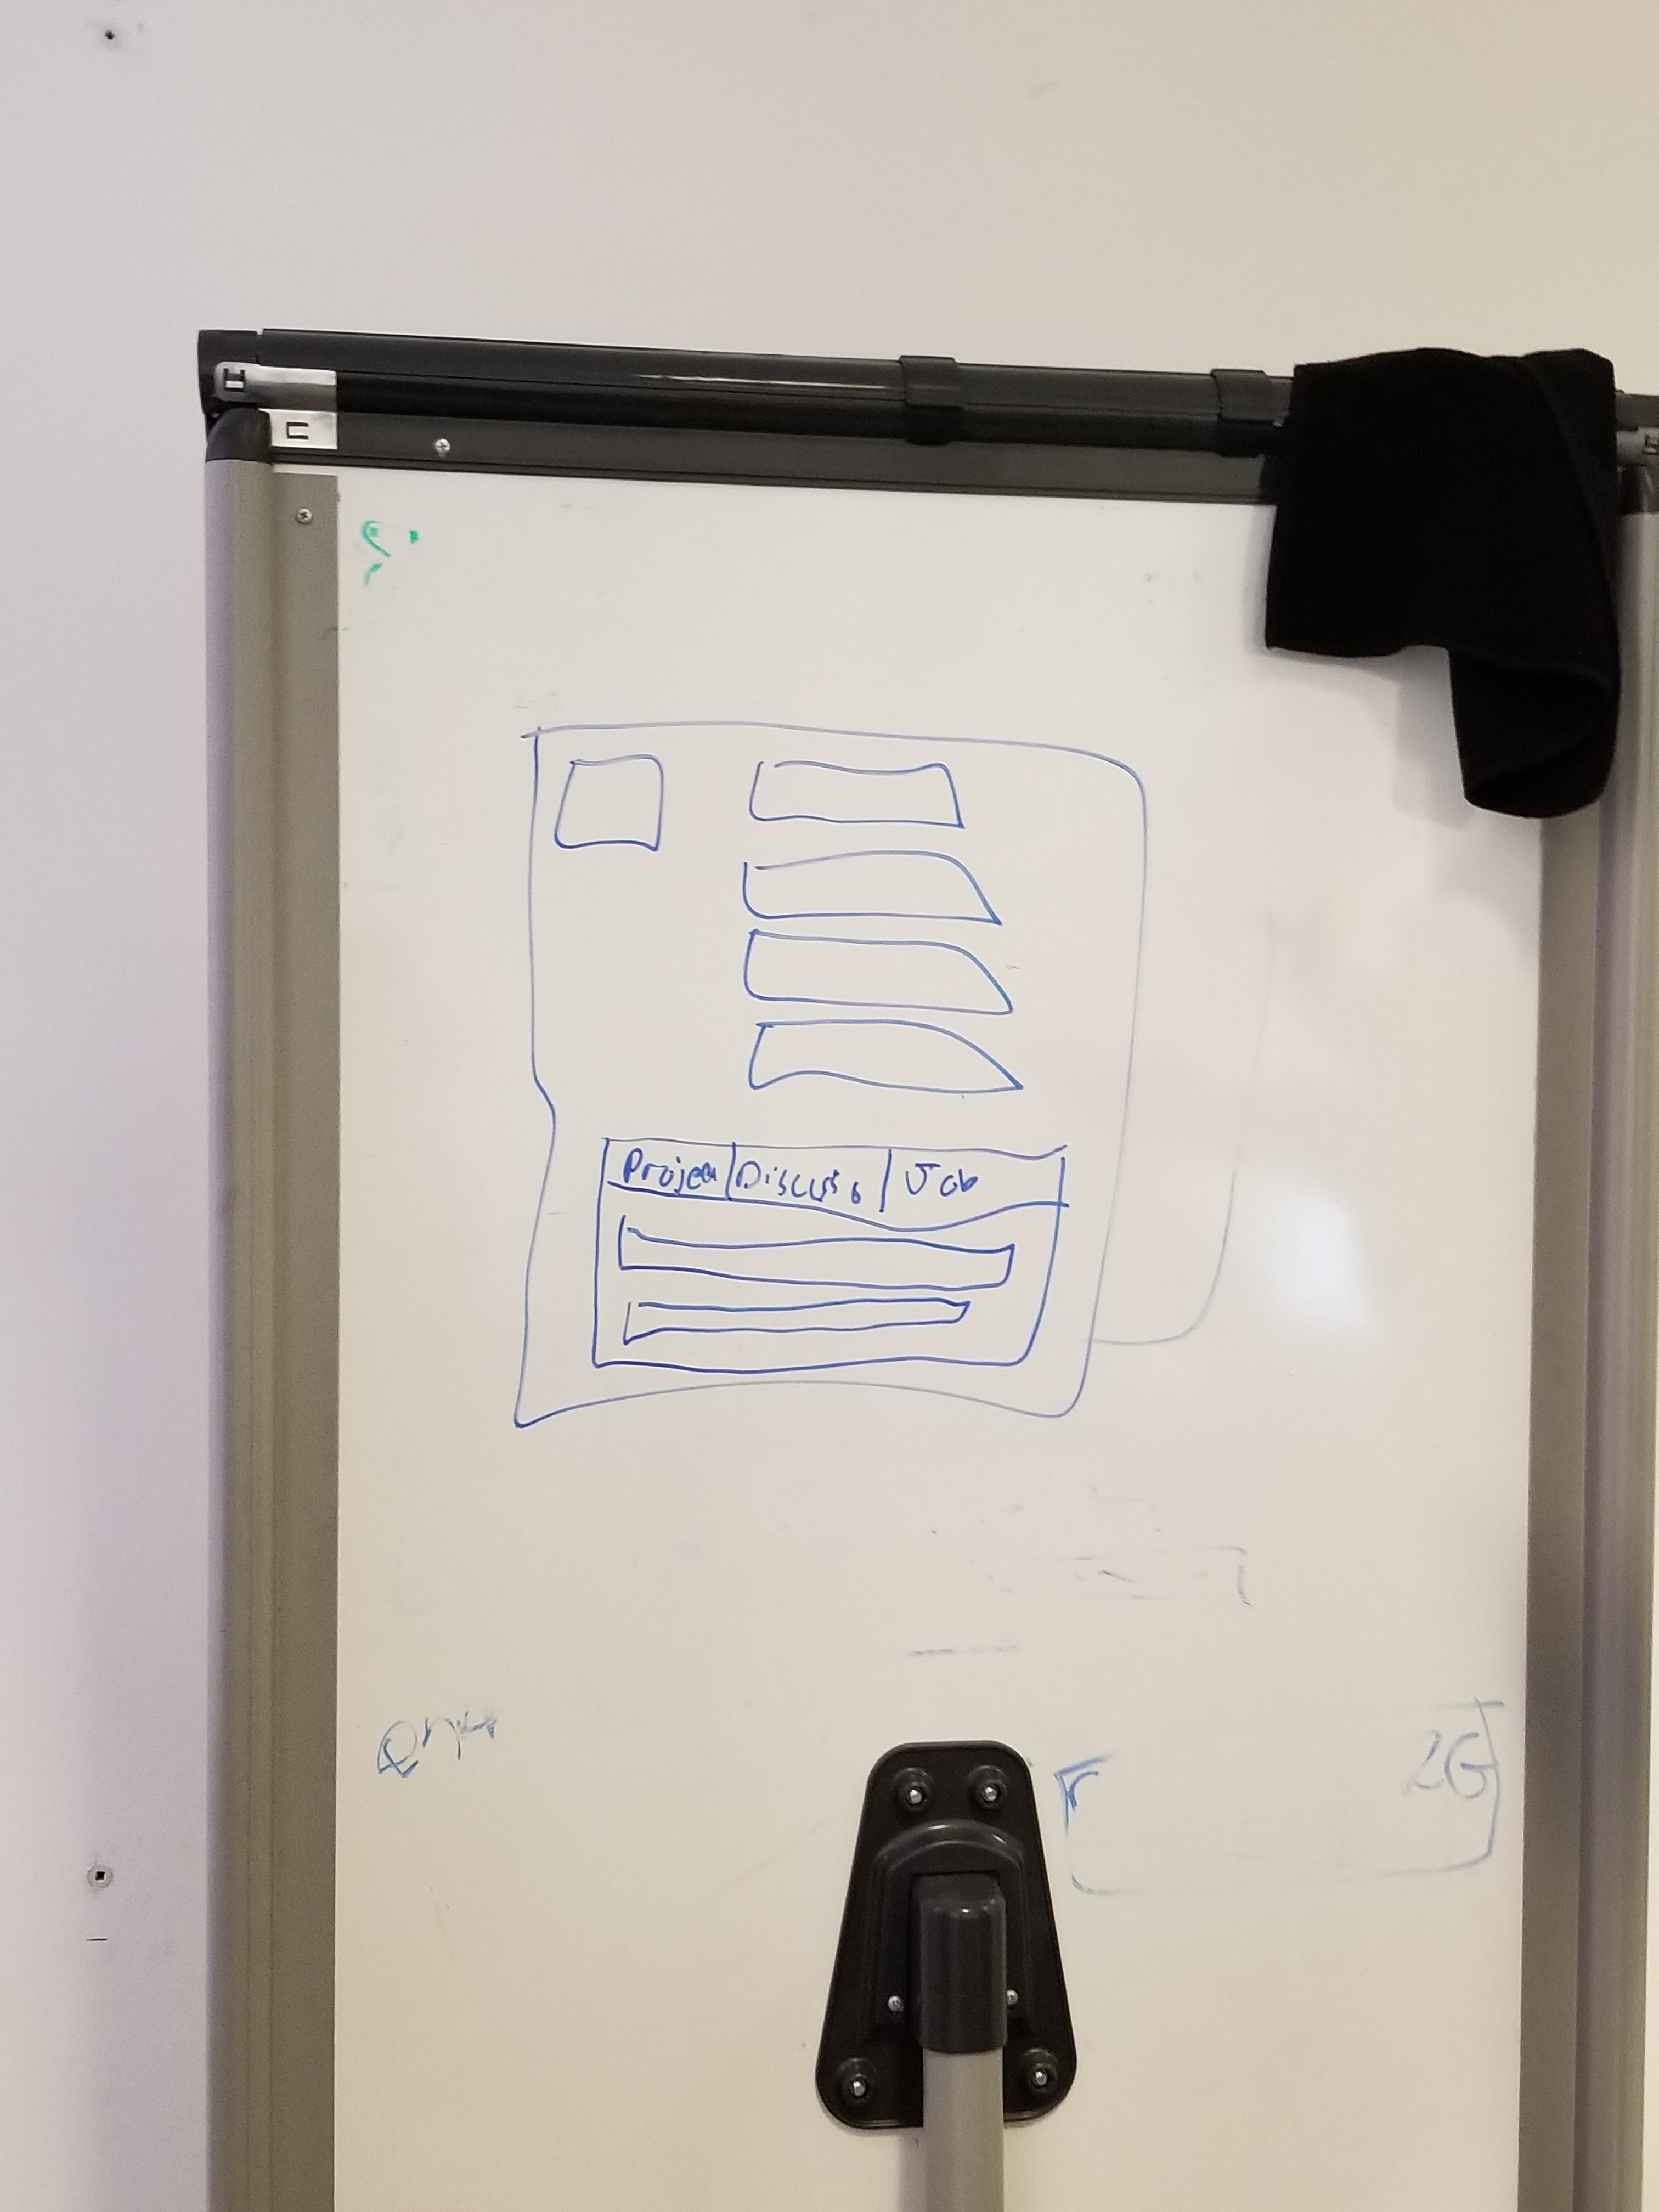 Projec Discuss Job
2G